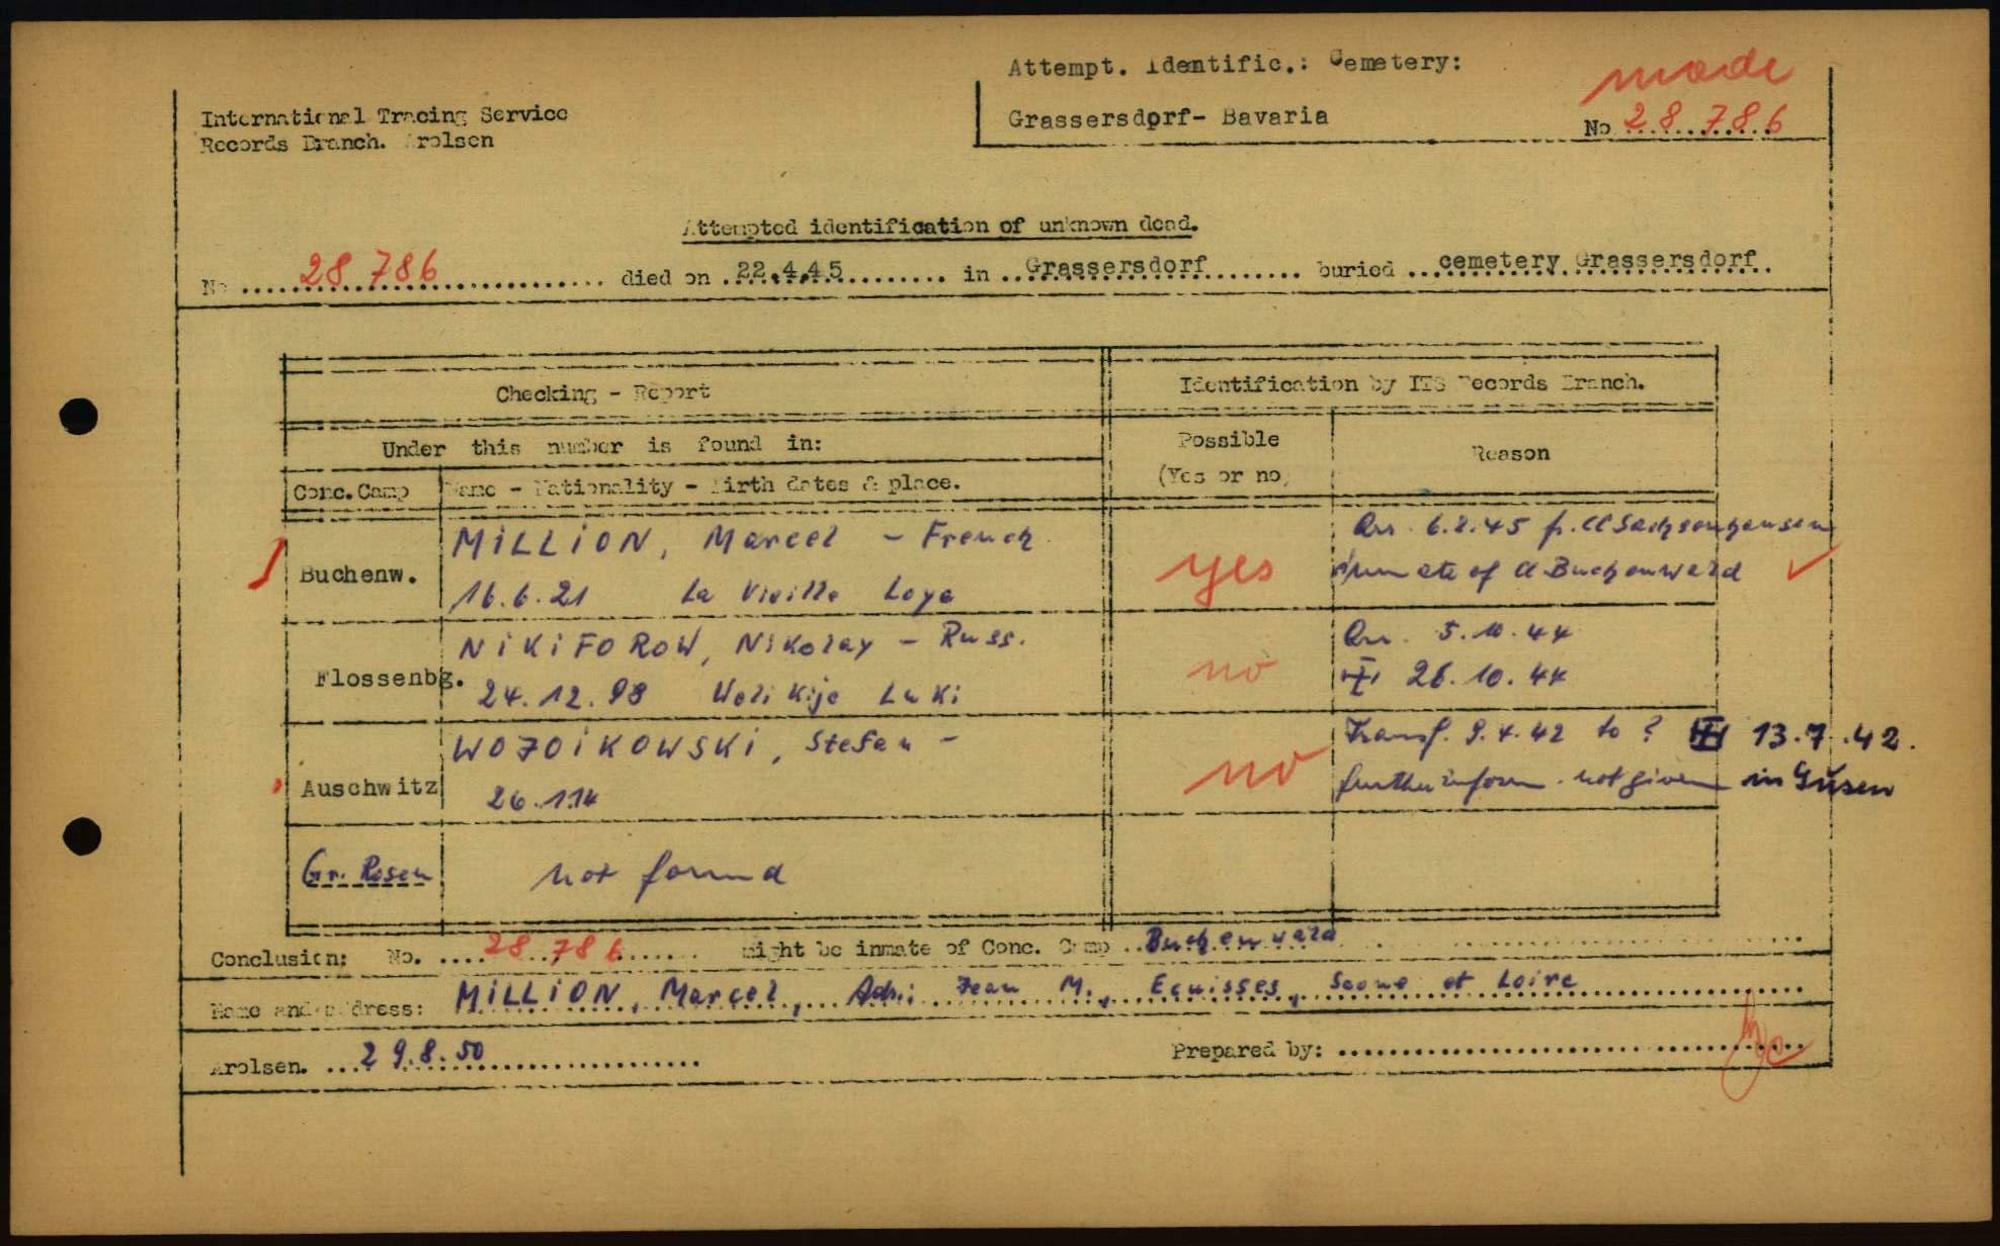 Attempt. Identific.: Cemetery:
made
International Tracing Service
Grassersdorf- Bavaria
No 28.786
Records Branch. Arolsen
Attempted identification of unknown dead.
No 28 786 died on 22.4.45 in Grassersdorf buried cemetery Grassersdorf
Checking - Report
Identification by ITS Records Branch.
Under this number is found in:
Possible
(Yes or no)
Reason
Conc. Camp
Name - Nationality - Birth dates & place.
Buchenw.
MILLION, Marcel - French
16.6.21 La Vieille Loye
yes
Arr. 6.2.45 f. CC Sachsenhausen
inmate of CC Buchenwald
Flossenbg.
NIKIFOROW, Nikolay - Russ.
24.12.98 Welikije Luki
no
Arr. 5.10.44
26.10.44
Auschwitz
WOJOIKOWSKI, Stefan -
26.1.14
no
Transf. 9.4.42 to ? 13.7.42.
further inform. not given in Gusen
Gr. Rosen
not found
Conclusion: No. 28.786 might be inmate of Conc. Camp Buchenwald
Name and address: MILLION, Marcel, Adr.: Jean M., Ecuisses, Saone et Loire
Arolsen. 29.8.50
Prepared by: